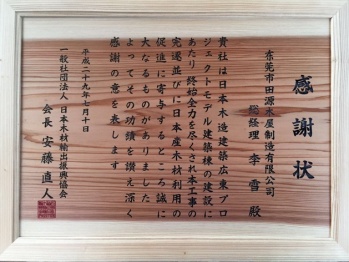 感謝状
东莞市田源木屋制造有限公司
总经理 李雪 殿
貴社は日本木造建築広東プロ
ジェクトモデル建築棟の建設に
あたり終始全力を尽くされ本工事の
完遂並びに日本産木材利用の
促進に寄与するところ誠に
大なるものがありました
よってその功績を讃え深く
感謝の意を表します
平成二十九年七月十日
一般社団法人 日本木材輸出振興協会
会長 安藤直人